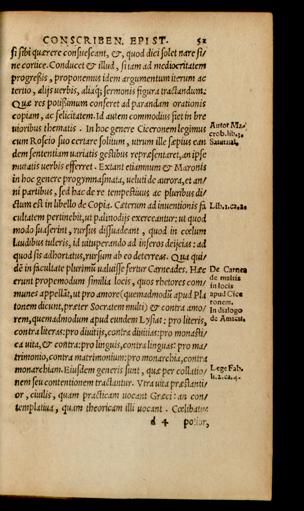 CONSCRIBEN. EPIST. 52
si sibi quærere consuescant, &, quod dici solet nare si/
ne cortice. Conducet & illud, si iam ad mediocritatem
progressis, proponemus idem argumentum iterum ac
tertio, alijs verbis, aliaq; sermonis figura tractandum:
Quæ res potissimum conferet ad parandam orationis
copiam, ac felicitatem. Id autem commodius fiet in bre
uioribus thematis. In hoc genere Ciceronem legimus
cum Roscio suo certare solitum, utrum ille sæpius ean
dem sententiam variatis gestibus repræsentaret, an ipse
mutatis verbis efferret. Extant etiamnum & Maronis
in hoc genere progymnasmata, ueluti de aurora, et am/
ni partibus, sed hac de re tempestiuius ac pluribus di/
ctum est in libello de Copia. Cæterum ad inuentionis fa
cultatem pertinebit, ut palinodijs exerceantur: ut quod
modo suaserint, rursus dissuadeant, quod in cœlum
laudibus tuleris, id uituperando ad inferos deijcias: ad
quod sis adhortatus, rursum ab eo deterreas. Qua qui/
dē in facultate plurimū ualuisse fertur Carneades. Hæc
erunt propemodum similia locis, quos rhetores com/
munes appellāt, ut pro amore (quemadmodū apud Pla
tonem dicunt, præter Socratem multi) & contra amo/
rem, quemadmodum apud eundem Lysias: pro literis,
contra literas: pro diuitijs, contra diuitias: pro monasti/
ca uita, & contra: pro linguis, contra linguas: pro ma/
trimonio, contra matrimonium: pro monarchia, contra
monarchiam. Eiusdem generis sunt, quæ per collatio/
nem seu contentionem tractantur. Vtra uita præstanti/
or, ciuilis, quam practicam uocant Græci: an con/
templatiua, quam theoricam illi uocant. Cœlibatus
d 4 potior,
Autor Ma/
crob. lib. 3.
Saturnal.
Lib. 1. ca. 2.
De Carnea
de multis
in locis
apud Cice
ronem.
In dialogo
de Amicit.
Lege Fab.
li. 2. ca. 4.